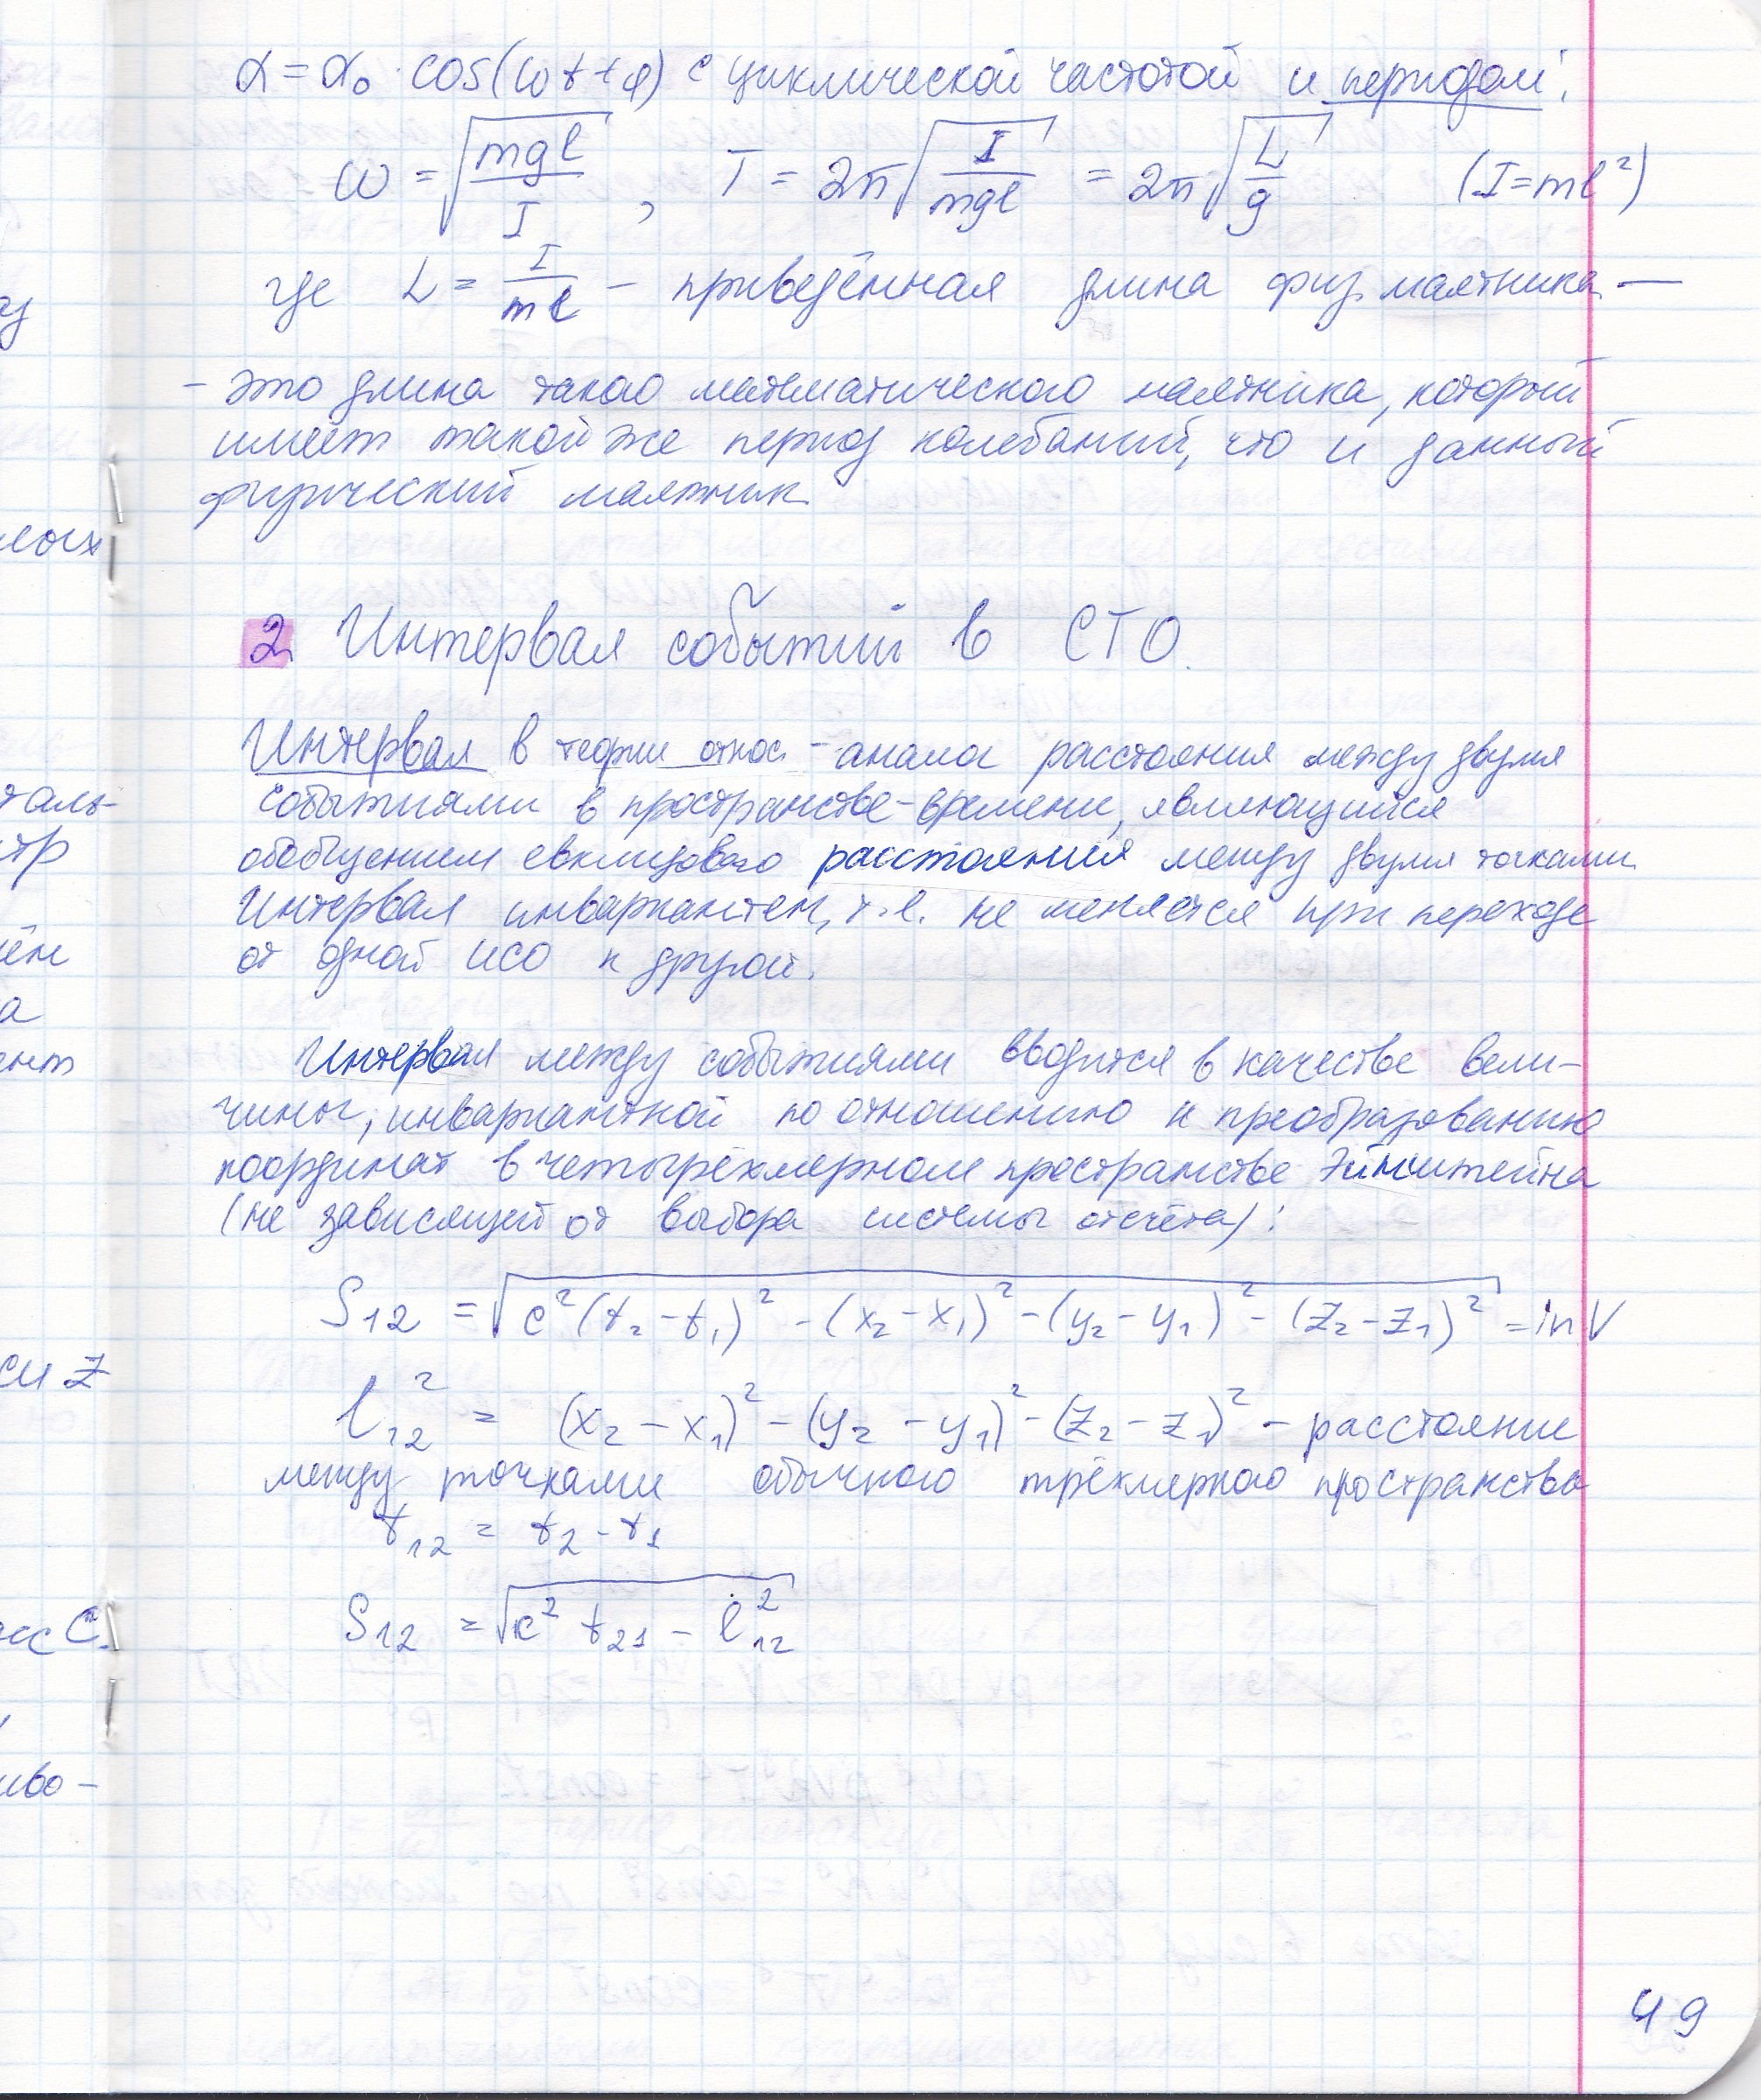 α = α₀ · cos(ωt + φ) с циклической частотой и периодом:
ω = √(mgl/I) , T = 2π√(I/mgl) = 2π√(L/g) (I=ml²)
где L = I/ml – приведённая длина физ. маятника —
– это длина такого математического маятника, который
имеет такой же период колебаний, что и данный
физический маятник
2. Интервал событий в СТО.
Интервал в теории относ. – аналог расстояния между двумя
событиями в пространстве-времени, являющийся
обобщением евклидового расстояния между двумя точками
Интервал инвариантен, т.е. не меняется при переходе
от одной ИСО к другой.
Интервал между событиями вводится в качестве вели-
чины, инвариантной по отношению к преобразованию
координат в четырёхмерном пространстве Эйнштейна
(не зависящей от выбора системы отсчёта):
S₁₂ = √(c²(t₂-t₁)² - (x₂-x₁)² - (y₂-y₁)² - (z₂-z₁)²) = inv
l₁₂² = (x₂-x₁)² - (y₂-y₁)² - (z₂-z₁)² – расстояние
между точками обычного трёхмерного пространства
t₁₂ = t₂ - t₁
S₁₂ = √(c² t₂₁ - l₁₂²)
49